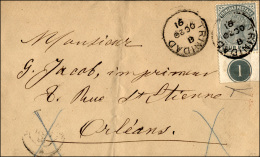 TRINIDAD
TRINIDAD
1
Monsieur
G. Jacob, imprimeur
8 Rue St Etienne
Orléans.